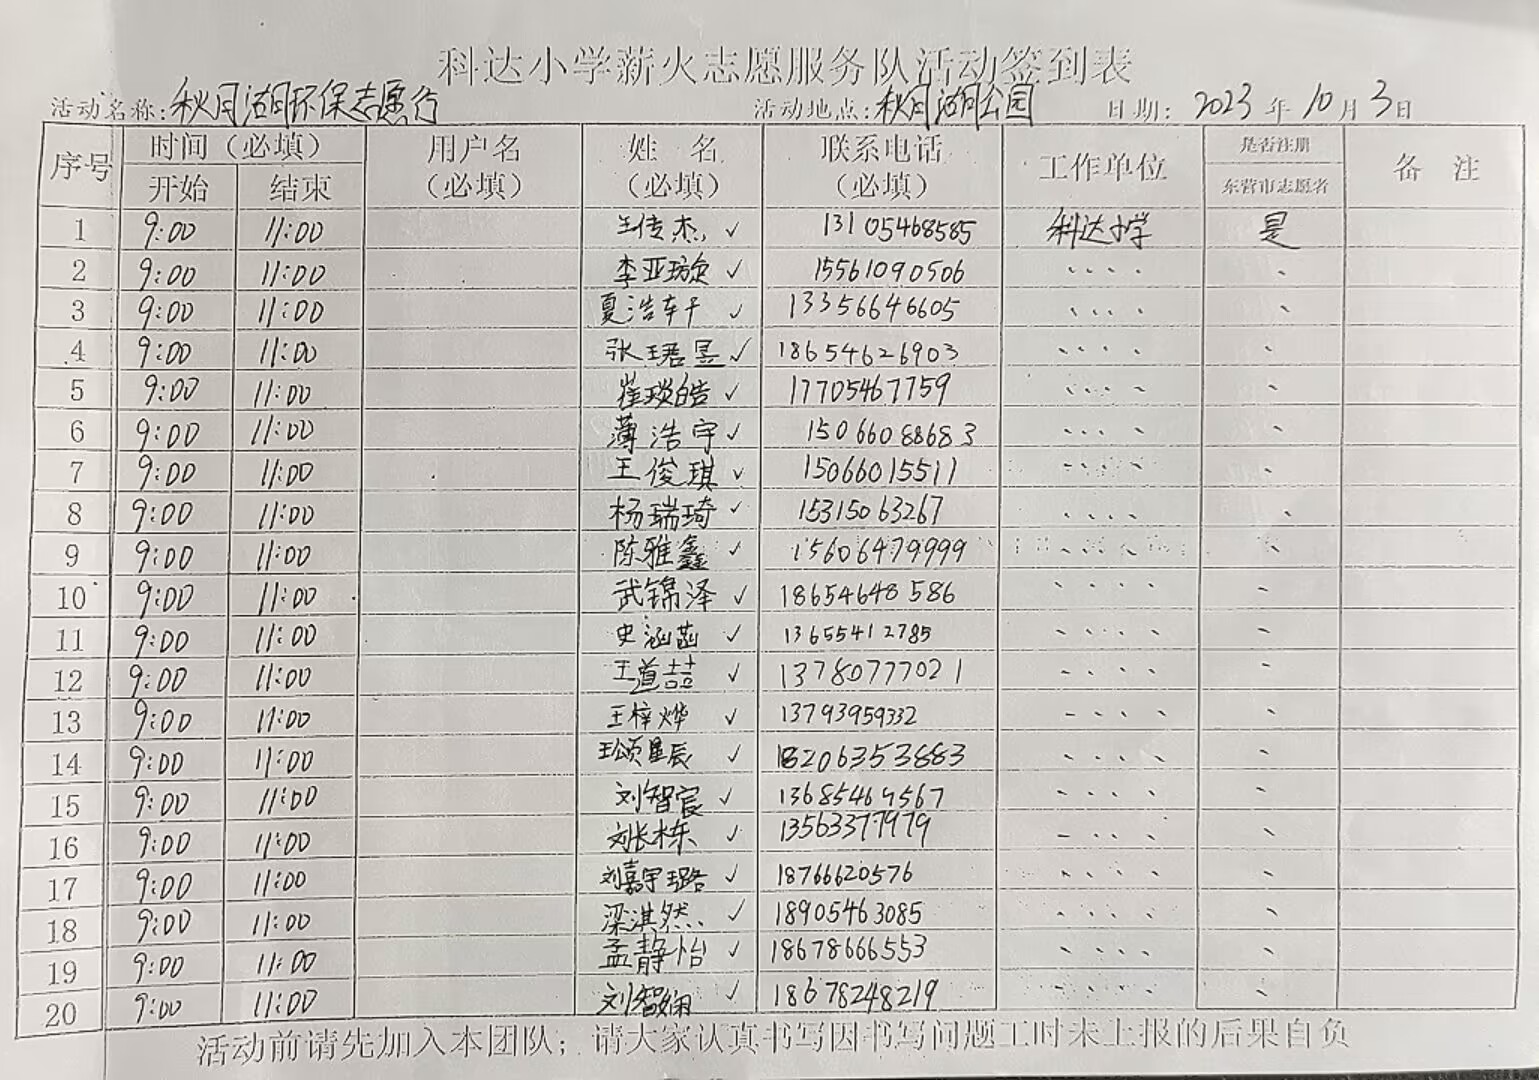 科达小学薪火志愿服务队活动签到表
活动名称:秋月湖环保志愿行 活动地点:秋月湖公园 日期: 2023 年 10 月 3 日
序号 时间（必填） 用户名（必填） 姓 名（必填） 联系电话（必填） 工作单位 是否注册东营市志愿者 备 注
开始 结束
1 9:00 11:00 王传杰 ✓ 13105468585 科达小学 是
2 9:00 11:00 李亚璇 ✓ 15561090506 、、、、 、
3 9:00 11:00 夏浩轩 ✓ 13356646605 、、、、 、
4 9:00 11:00 张珺昱 ✓ 18654626903 、、、、 、
5 9:00 11:00 崔琰皓 ✓ 17705467759 、、、、 、
6 9:00 11:00 薄浩宇 ✓ 15066088683 、、、、 、
7 9:00 11:00 王俊琪 ✓ 15066015511 、、、、 、
8 9:00 11:00 杨瑞琦 ✓ 15315063267 、、、、 、
9 9:00 11:00 陈雅鑫 ✓ 15606479999 、、、、 、
10 9:00 11:00 武锦泽 ✓ 18654648586 、、、、 、
11 9:00 11:00 史涵菡 ✓ 13655412785 、、、、 、
12 9:00 11:00 王道喆 ✓ 13780777021 、、、、 、
13 9:00 11:00 王梓烨 ✓ 13793959332 、、、、 、
14 9:00 11:00 星辰 ✓ 18206353883 、、、、 、
15 9:00 11:00 刘智宸 ✓ 13685469567 、、、、 、
16 9:00 11:00 刘长栋 ✓ 13563377979 、、、、 、
17 9:00 11:00 刘嘉宇璐 ✓ 18766620576 、、、、 、
18 9:00 11:00 梁淇然 ✓ 18905463085 、、、、 、
19 9:00 11:00 孟静怡 ✓ 18678666553 、、、、 、
20 9:00 11:00 刘智娴 ✓ 18678248219 、、、、 、
活动前请先加入本团队；请大家认真书写因书写问题工时未上报的后果自负